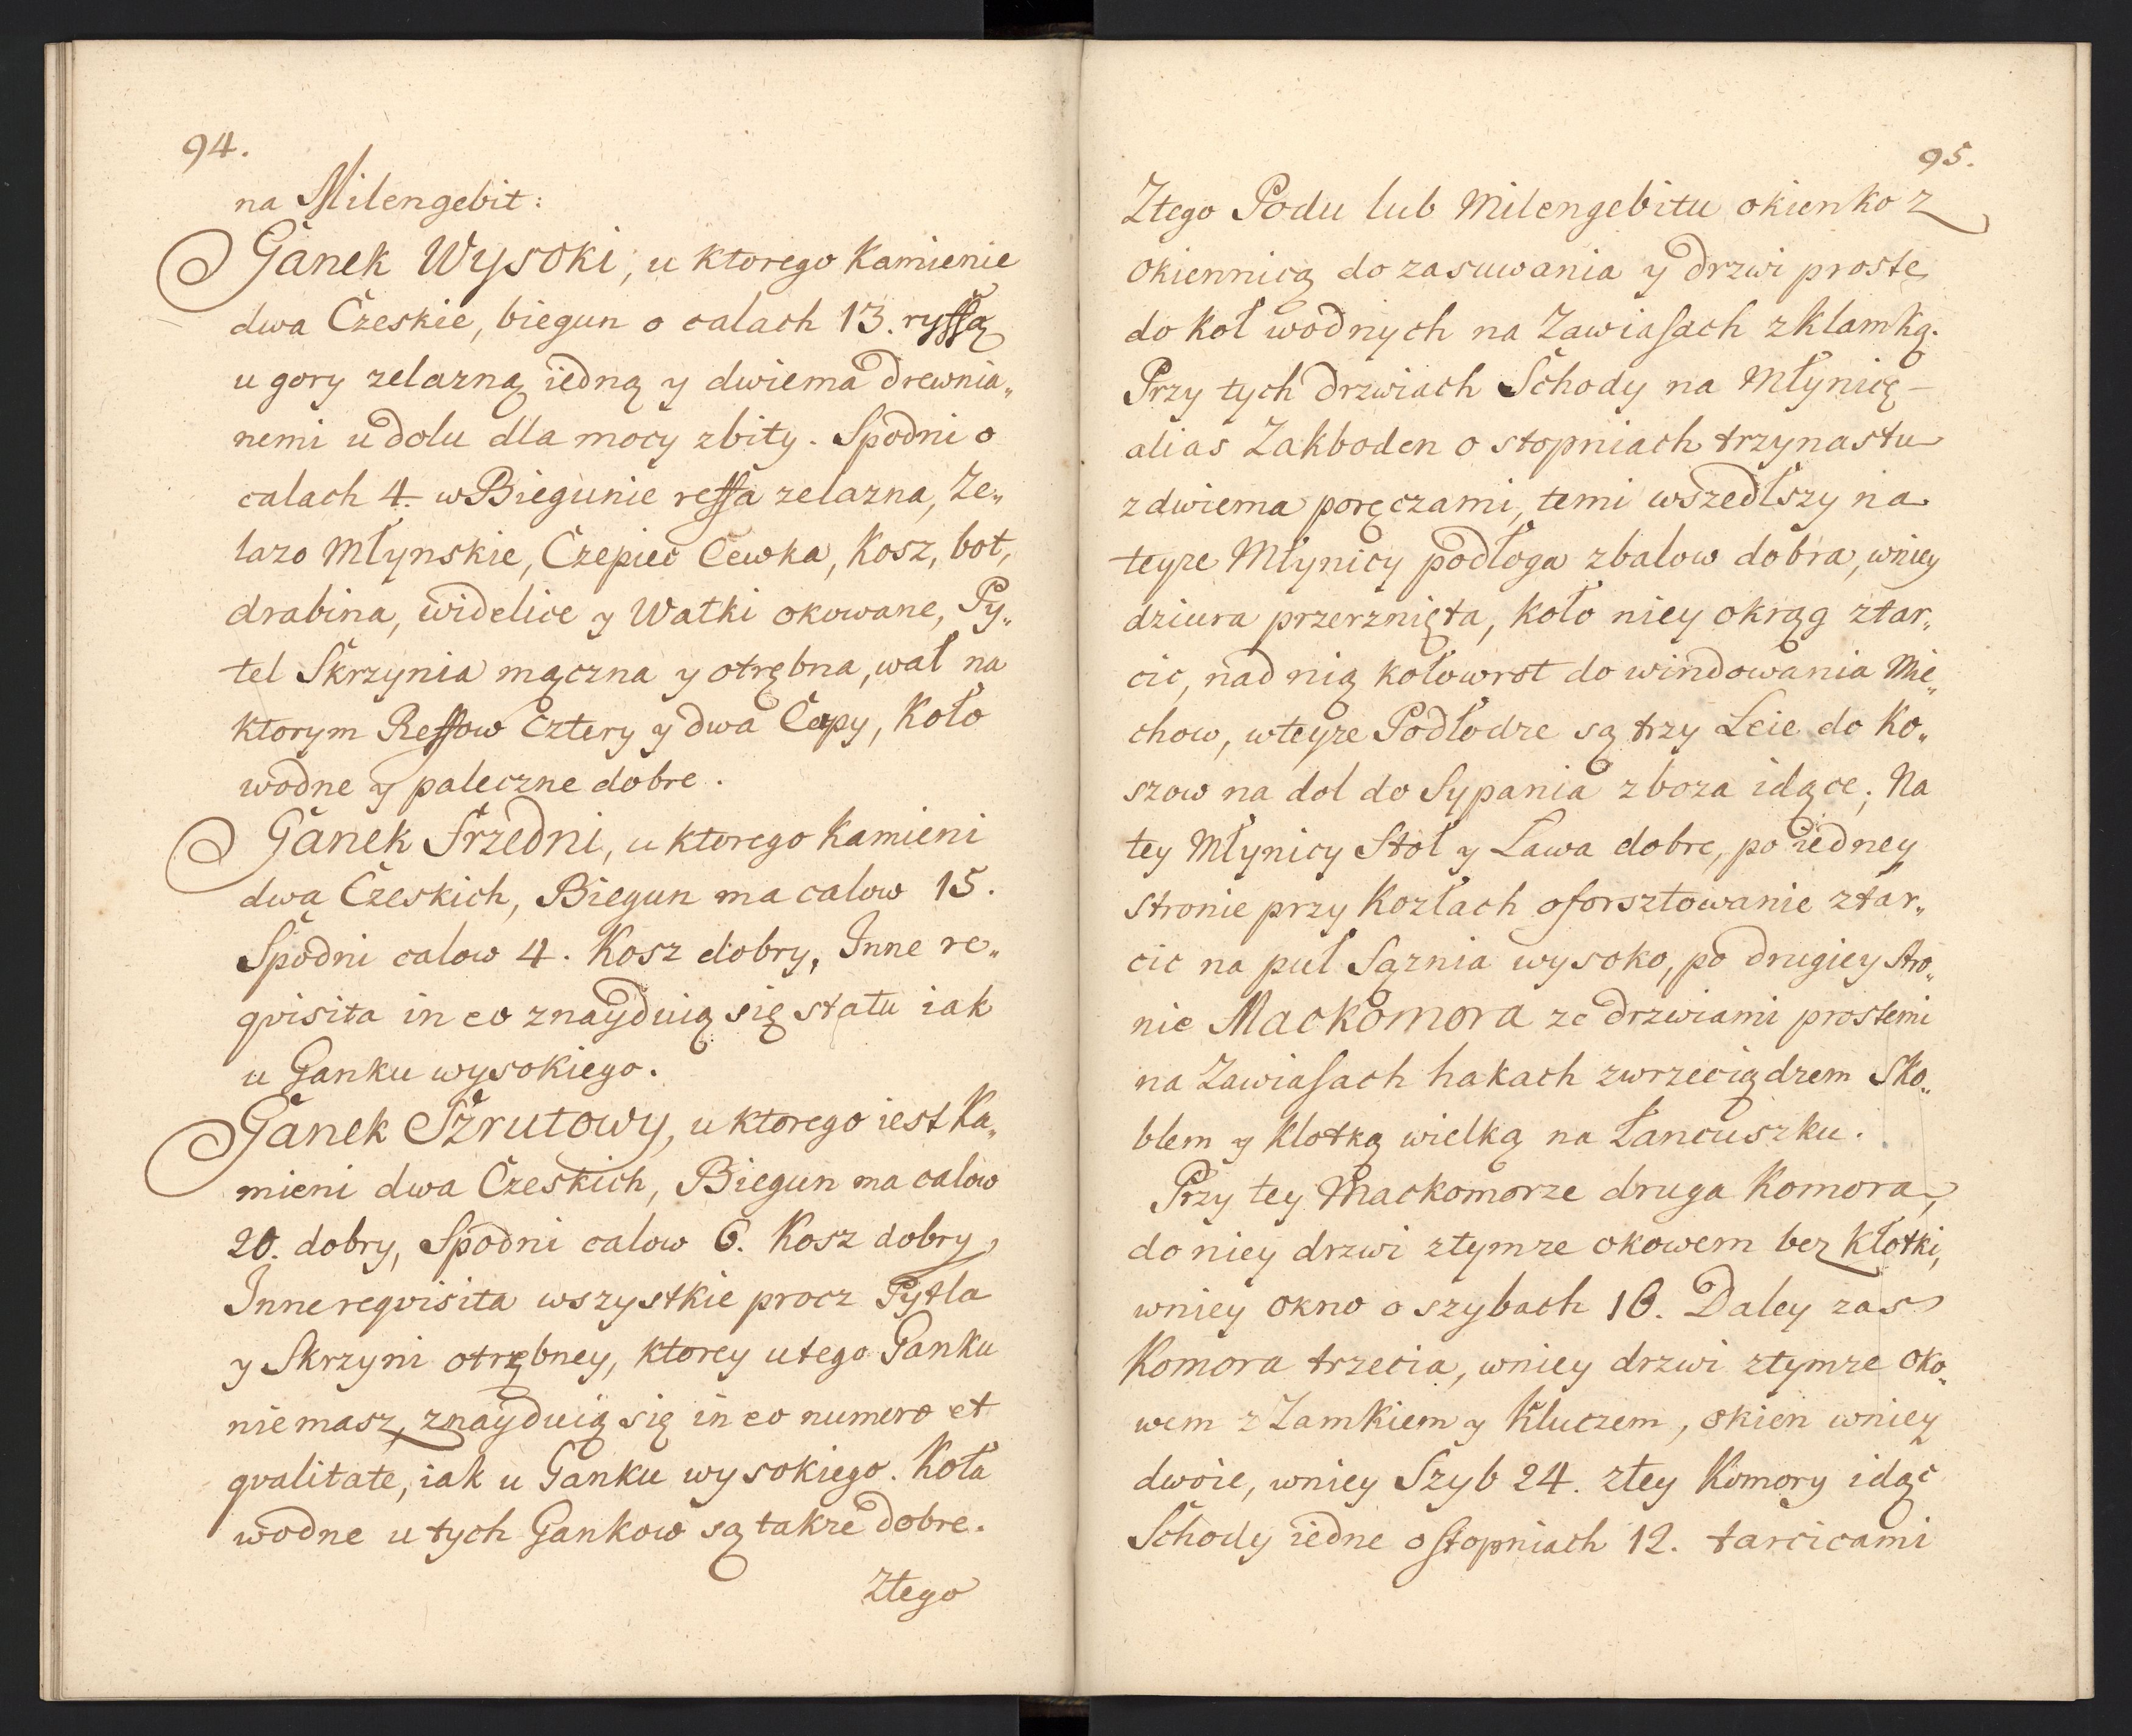 94.
na Milengebit:
Ganek Wysoki, u ktorego Kamienie
dwa Czeskie, biegun o calach 13. ryffą
u gory zelazną iedną y dwiema drewnia„
nemi u dolu dla mocy zbity. Spodni o
calach 4. w Biegunie reffa zelazna, Ze„
lazo Młynskie, Czepiec Cewka, Kosz, bot,
drabina, widelice y Watki okowane, Py„
tel Skrzynia mączna y otrębna, wał na
ktorym Reffow cztery y dwa Czapy, Koło
wodne y paleczne dobre.
Ganek Srzedni, u ktorego Kamieni
dwa Czeskich, Biegun ma calow 15.
Spodni calow 4. Kosz dobry, Inne re„
qvisita in eo znayduią się statu iak
u Ganku wysokiego.
Ganek Szrutowy, u ktorego iest Ka„
mieni dwa Czeskich, Biegun ma calow
20. dobry, Spodni calow 6. Kosz dobry,
Inne reqvisita wszystkie procz Pytla
y Skrzyni otrębney, ktorey u tego Ganku
nie masz, znayduią się in eo numero et
qvalitate, iak u Ganku wysokiego. Koła
wodne u tych Gankow są takze dobre.
Ztego
95.
Ztego Podu lub Milengebitu okienko z
okiennicą do zasuwania y drzwi proste
do Koł wodnych na Zawiasach z Klamką.
Przy tych drzwiach Schody na Młynicę –
alias Zakboden o stopniach trzynastu
z dwiema poręczami, temi wszedłszy na
teyze Młynicy podłoga z balow dobra, w niey
dziura przerznięta, koło niey okrąg z tar„
cic, nad nią kołowrot do windowania Mie„
chow, w teyze Podłodze są trzy Leie do Ko„
szow na dol do Sypania zboza idące; Na
tey Młynicy Stoł y Ława dobre, po iedney
stronie przy Kozłach oforsztowanie z tar„
cic na puł Sąznia wysoko, po drugiey stro„
nie Mackomora ze drzwiami prostemi
na Zawiasach hakach z wrzeciądzem Sko„
blem y Klotką wielką na Łancuszku.
Przy tey Mackomorze druga Komora,
do niey drzwi z tymze okowem bez Kłotki,
w niey okno o szybach 16. Daley zas
Komora trzecia, w niey drzwi z tymze oko„
wem z Zamkiem y Kluczem, okien w niey
dwoie, w niey Szyb 24. z tey Komory idąc
Schody iedne o stopniach 12. tarcicami